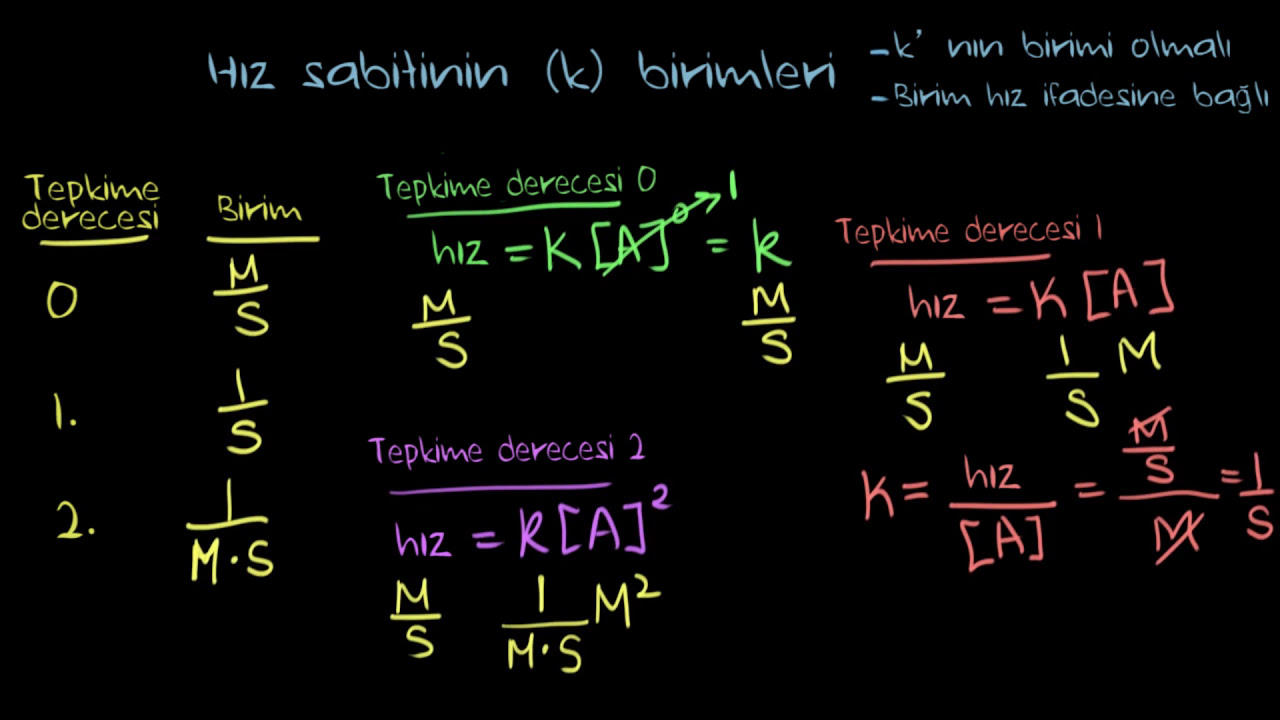 Hız sabitinin (k) birimleri
-k' nın birimi olmalı
-Birim hız ifadesine bağlı
Tepkime derecesi
Birim
0
M/S
1.
1/S
2.
1/M·S
Tepkime derecesi 0
hız = K [A]⁰ → 1 = k
M/S
M/S
Tepkime derecesi 2
hız = k [A]²
M/S
1/M·S M²
Tepkime derecesi 1
hız = K [A]
M/S
1/S M
K = hız/[A] = M/S/M = 1/S